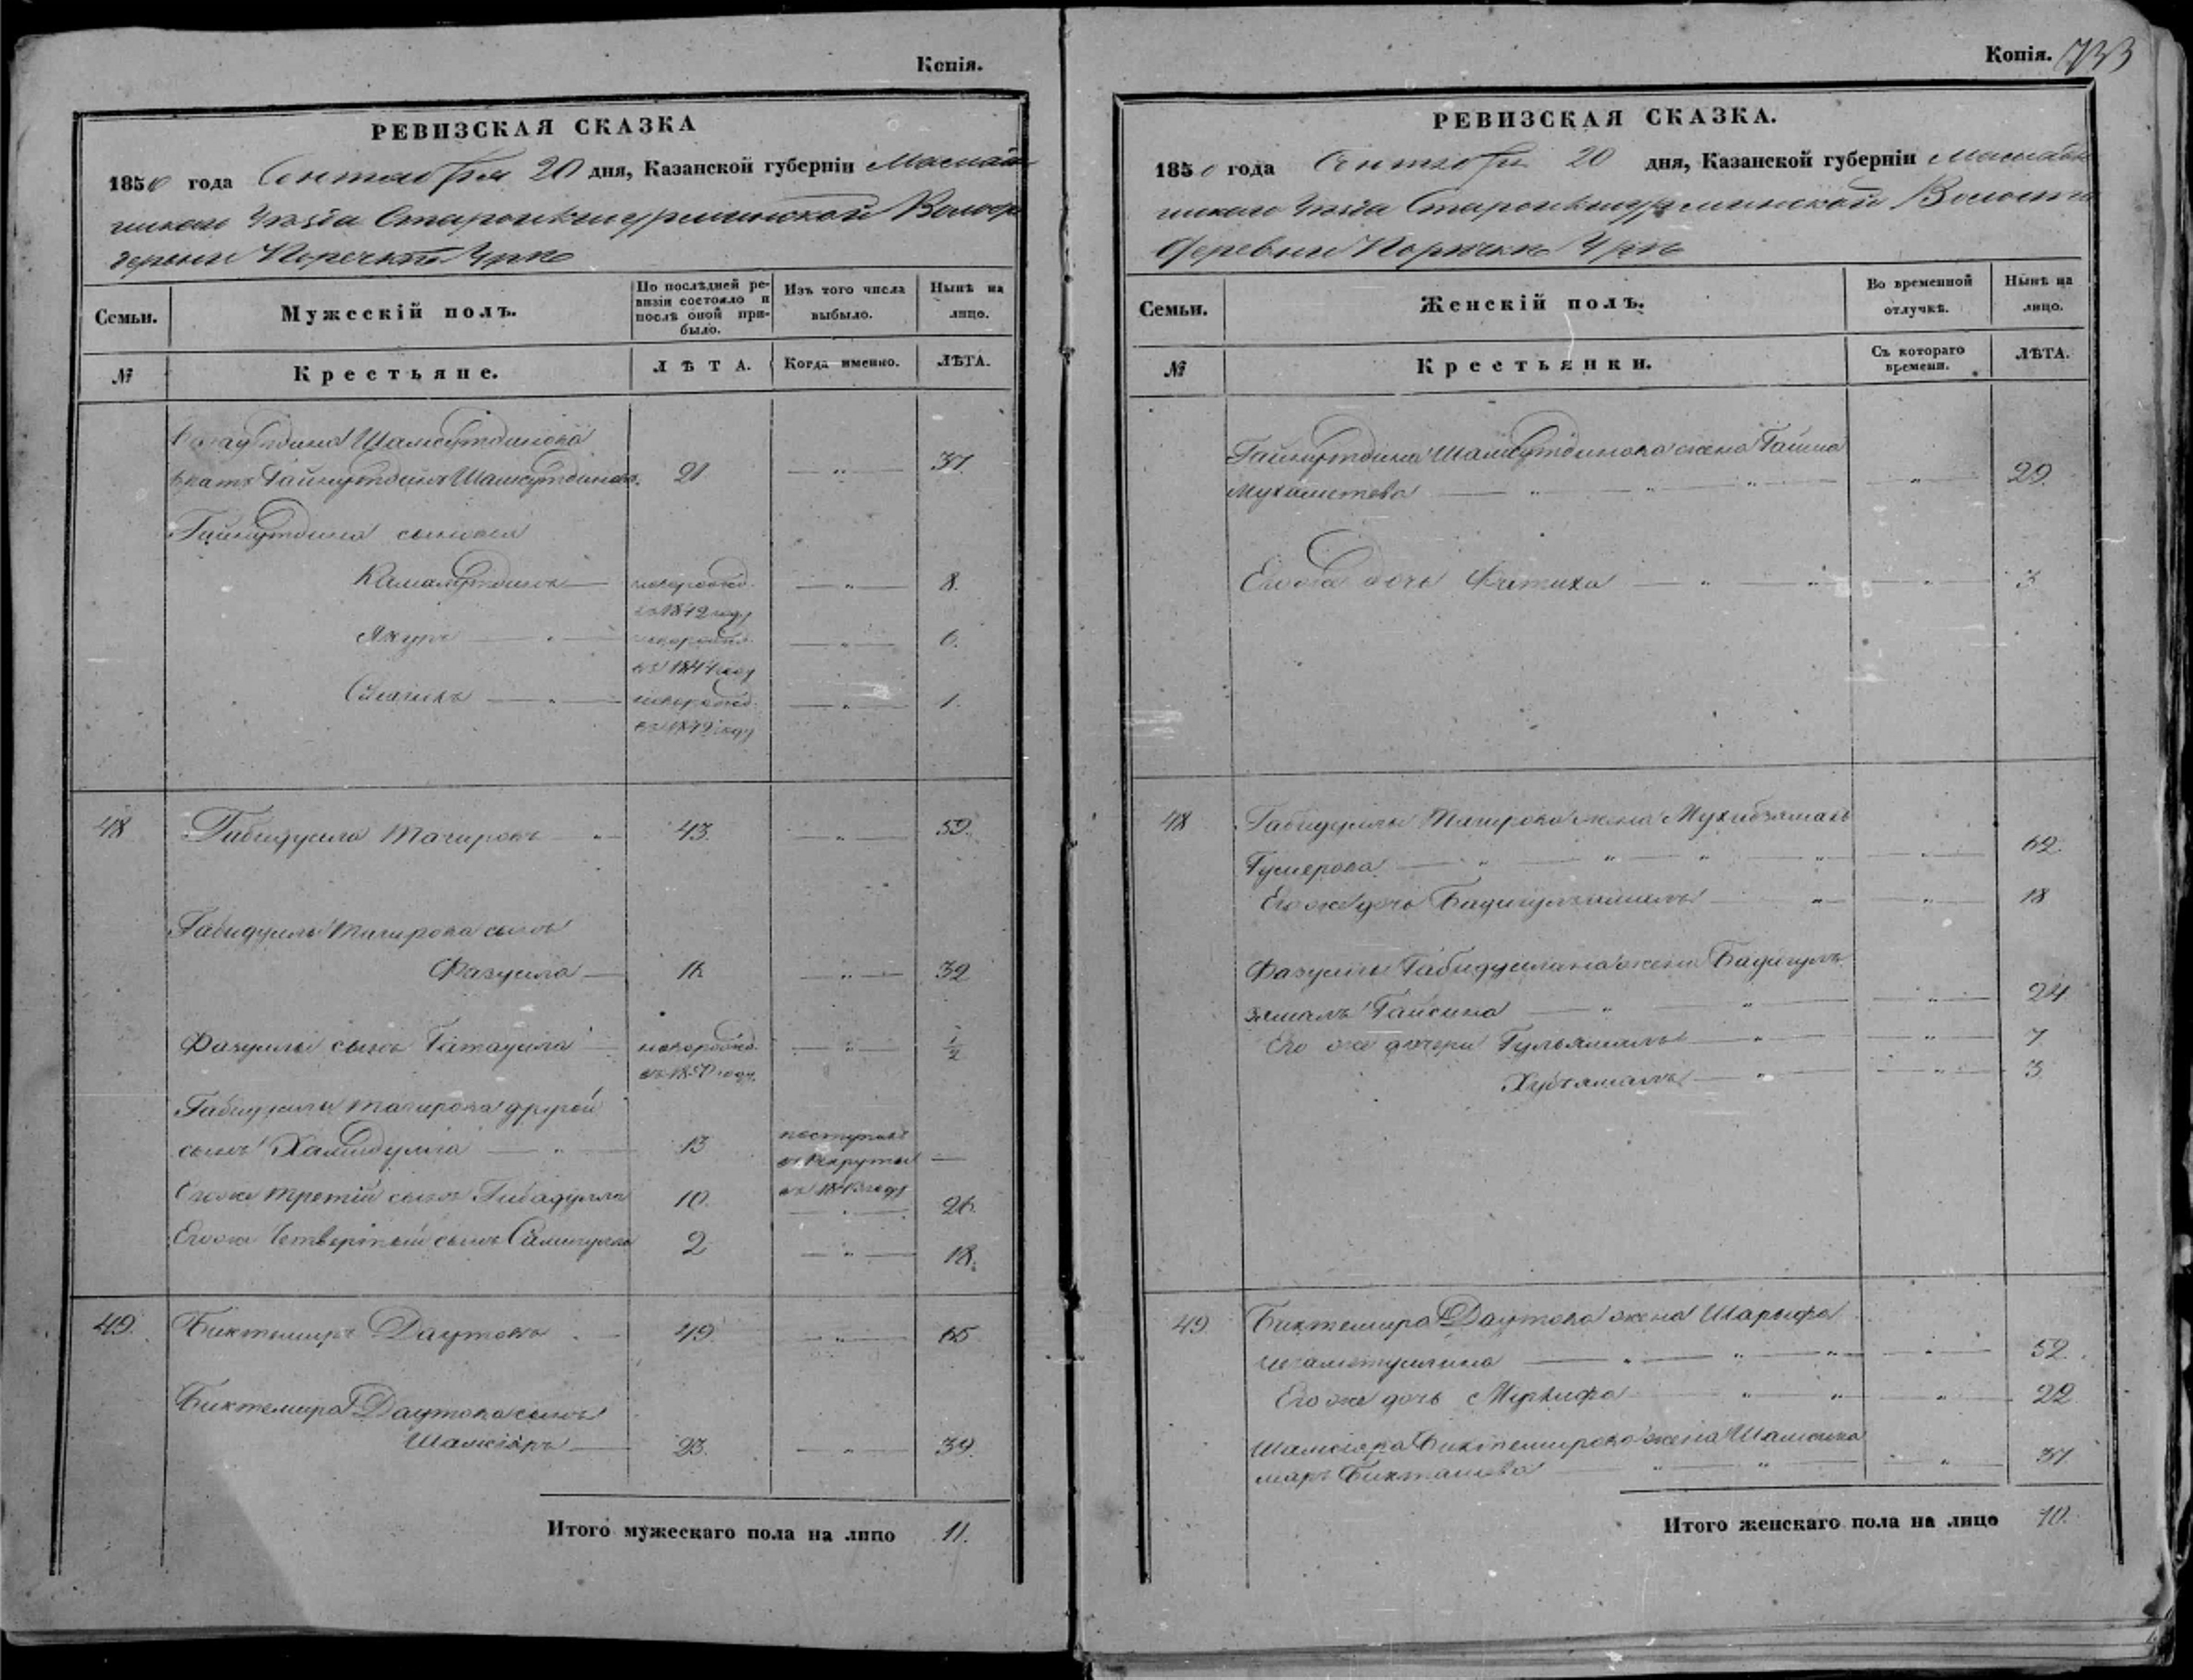 Копія.
РЕВИЗСКАЯ СКАЗКА
1850 года Сентября 20 дня, Казанской губерніи
Уѣзда Волос
Семьи.
Мужескій полъ.
По послѣдней ревизіи состояло и послѣ оной прибыло.
Изъ того числа выбыло.
Нынѣ на лицо.
№
Крестьяне.
ЛѢТА.
Когда именно.
ЛѢТА.
Шамсутдинова
братъ Гайнутдинъ Шамсутдиновъ. 21 — „ — 37.
Гайнутдина сыновья
Камалутдинъ — новорожд. — „ — 8.
въ 1842 году
Якупъ — „ — новорожд. — „ — 6.
въ 1844 году
— „ — новорожд. — „ — 1.
48 Габидулла Тагировъ „ — 43. — „ — 59.
Габидуллы Тагирова сынъ
Фазулла — 16 — „ — 32
Фазуллы сынъ Гатаулла — новорожд. — „ — ½
въ 1850 году.
Габидуллы Тагирова другой
сынъ Хамидулла — „ — 13 поступилъ въ рекруты въ 1843 году —
Егоже третій сынъ Гибадулла 10. — „ — 26.
Егоже четвертый сынъ Самигулла 2 — „ — 18.
49. Биктемиръ Даутовъ — 49 — „ — 65
Биктемира Даутова сынъ
Шамсіяръ — 23. — „ — 39.
Итого мужескаго пола на лицо 11.
Копія. 733
РЕВИЗСКАЯ СКАЗКА.
1850 года Сентября 20 дня, Казанской губерніи
Уѣзда Волости
Деревни
Семьи.
Женскій полъ.
Во временной отлучкѣ.
Нынѣ на лицо.
№
Крестьянки.
Съ котораго времени.
ЛѢТА.
Гайнутдина Шамсутдинова жена
Мухаметева — „ — „ — „ — 29.
Егоже дочь Фатиха — „ — „ — „ — 3
48 Габидуллы Тагирова жена Мухибзямалъ
Гумерова — „ — „ — „ — 62.
Егоже дочь Бадигулзямалъ „ — „ — 18
Фазуллы Габидуллина жена Бадигулъ
зямалъ Гайсина — „ — „ — „ — 24
Его же дочери Гульямалъ — „ — „ — 7
Хубзямалъ — „ — „ — 3.
49. Биктемира Даутова жена Шарыфа
— „ — „ — „ — 52.
Его же дочь — „ — „ — 22
Шамсіяра Биктемирова жена
„ — „ — 37
Итого женскаго пола на лицо 10.